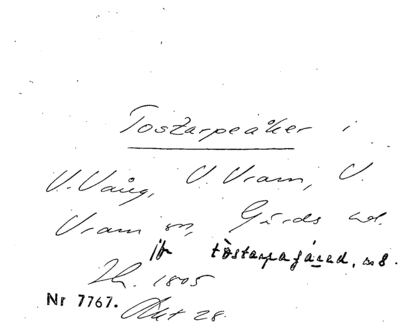 Tostarpeåker i
V. Vång, V. Vram, V.
Vram sn, Gärds hd.
tostarpa
Sk. 1805
Nr 7767. Akt 28.